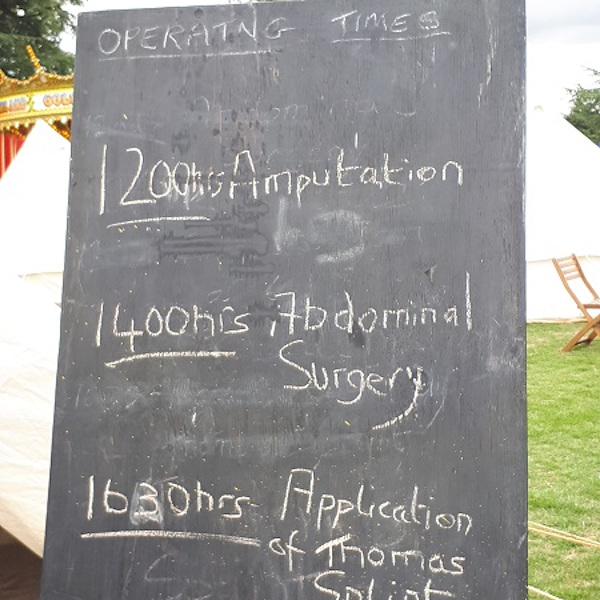 OPERATNG TIMES
1200hrs Amputation
1400hrs Abdominal
Surgery
1630hrs- Application
of Thomas
Splint